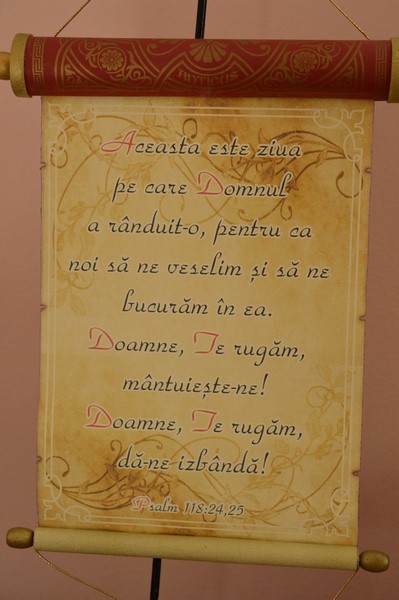 MYTICUS
Aceasta este ziua
pe care Domnul
a rânduit-o, pentru ca
noi să ne veselim și să ne
bucurăm în ea.
Doamne, Te rugăm,
mântuiește-ne!
Doamne, Te rugăm,
dă-ne izbândă!
Psalm 118:24,25